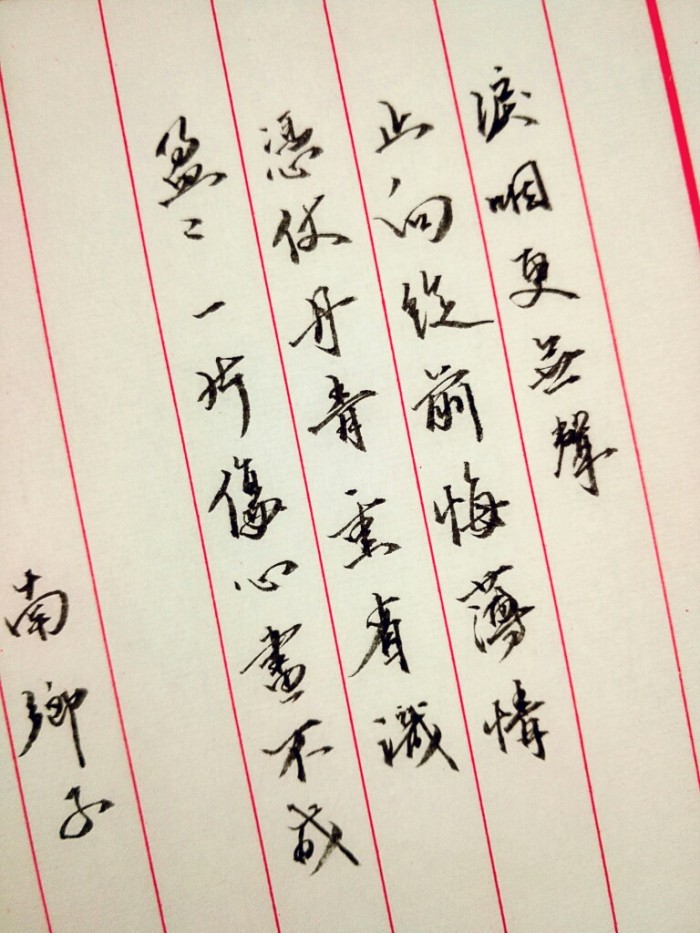 淚咽更無聲
止向從前悔薄情
憑仗丹青重省識
盈〻一片傷心畫不成
南鄉子